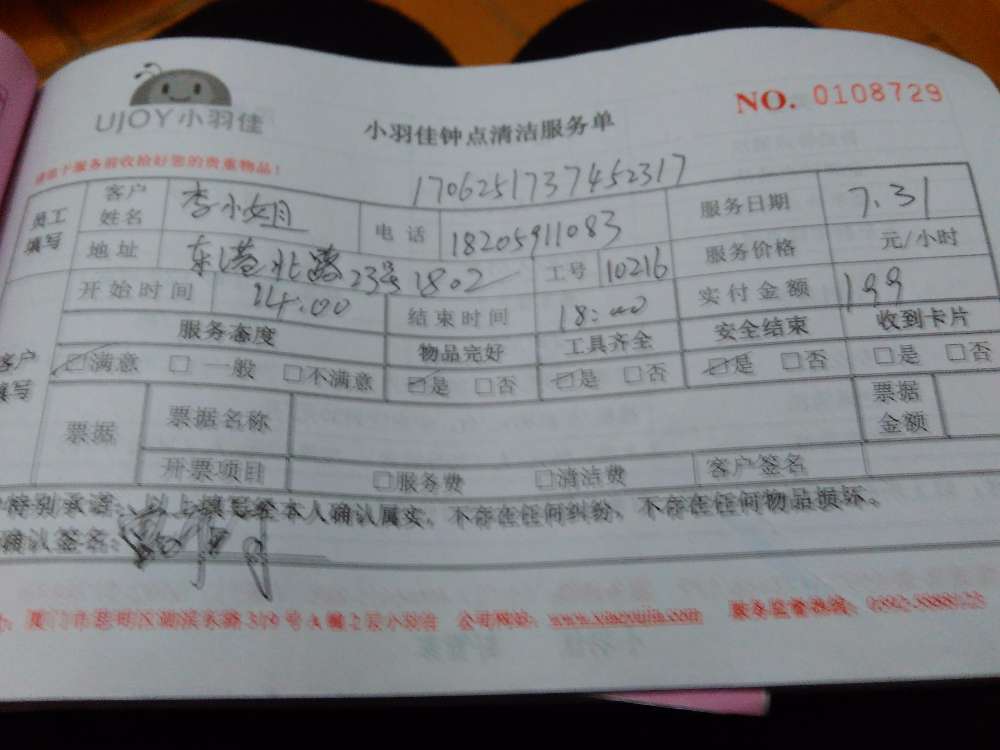 UJOY小羽佳
NO. 0108729
小羽佳钟点清洁服务单
服务前收拾好您的贵重物品!
1706251737452317
员工填写 客户姓名 李小姐 电话 18205911083 服务日期 7.31
地址 东港北路23号1802 工号 10216 服务价格 元/小时
开始时间 14:00 结束时间 18:00 实付金额 199
客户填写 服务态度 物品完好 工具齐全 安全结束 收到卡片
☑满意 □一般 □不满意 ☑是 □否 ☑是 □否 ☑是 □否 □是 □否
票据 票据名称 票据金额
开票项目 □服务费 □清洁费 客户签名
特别承诺:以上填写经本人确认属实,不存在任何纠纷,不存在任何物品损坏。
确认签名:
厦门市思明区湖滨东路319号A幢2层小羽佳 公司网站:www.xiaoyujia.com 服务监督热线: